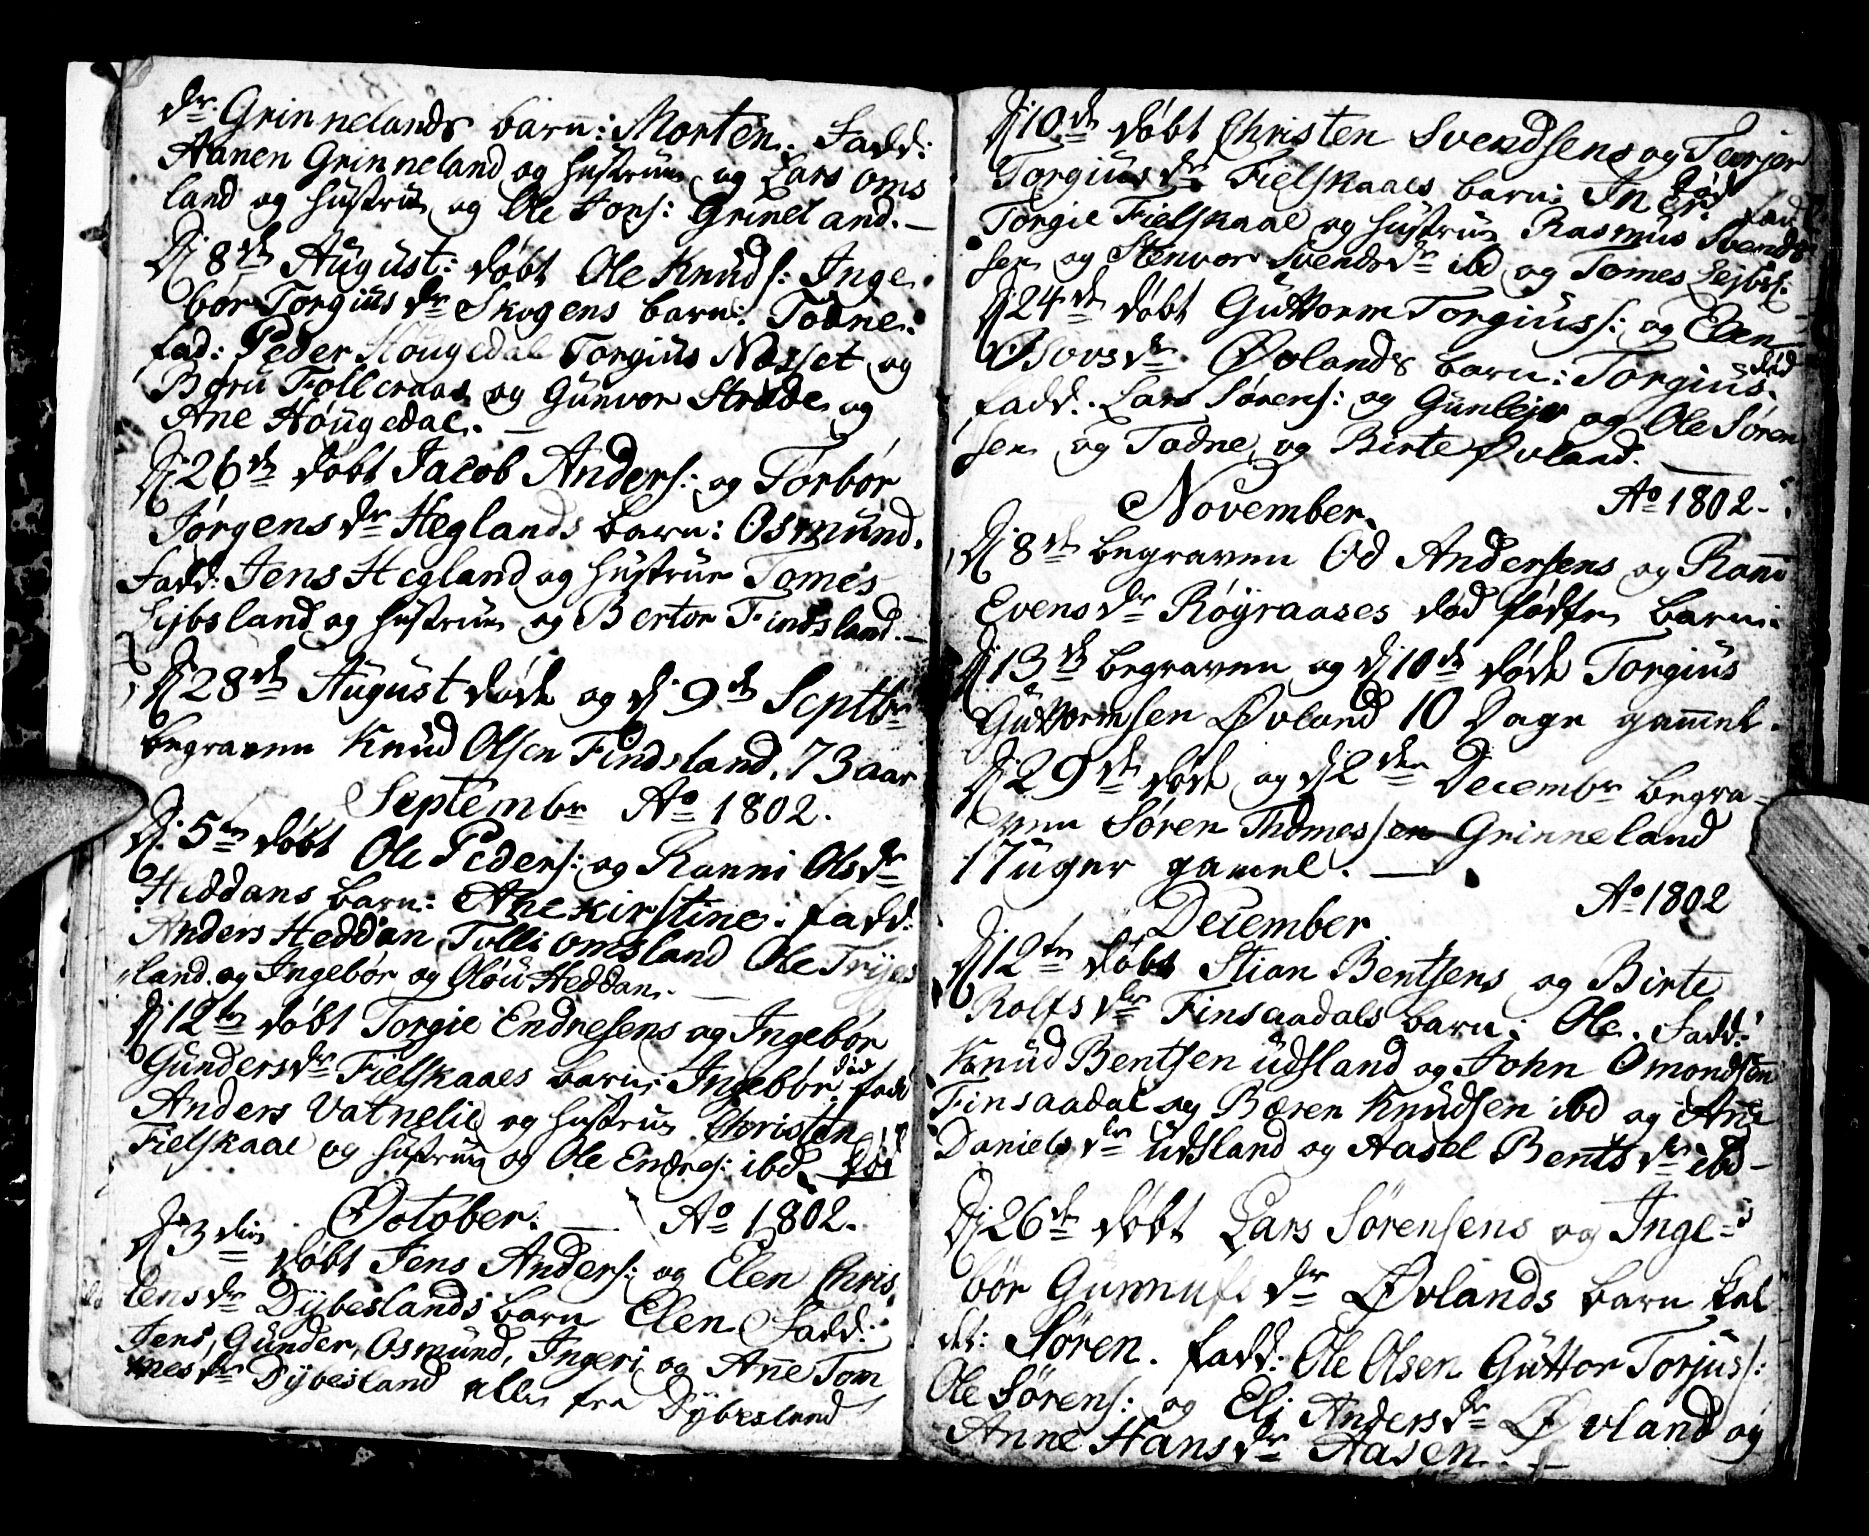 dr. Grinnelands barn: Morten. Fadd:
Aanen Grinneland og hustrue og Lars Oms
land og hustrue og Ole Jons: Grineland. —
Dj 8de August: døbt Ole Knuds: Inge
bør Torgiusdr Skogens barn: Todne.
fad: Peder Hougedal Torgius Nøsset og
Børu Folleraas og Gunvor Stræde og
Ane Hougedal. —
Dj 26de døbt Jacob Anders: og Torbør
Jørgensdr Heglands barn: Osmund.
Fadd: Jens Hegland og hustrue Tomes
Lejbsland og hustrue og Bertor Findsland. —
Dj 28de August døde og dj 9de Septbr
begraven Knud Olsen Findsland. 73 aar
Septembr Ao 1802.
Dj. 5te døbt Ole Peders: og Ranni Olsdr
Heddans barn: Ane Kirstine: fadd:
Anders Heddan, Tolli Omsland Ole Tryes
land og Ingebør og Oløu Heddan. —
Dj 12te døbt Torgie Endresens og Ingebør
Gundersdr Fielskaaes barn: Ingebør. død fadd
Anders Vatnelie og hustrue Christen
Fielskaae og hustrue og Ole Endres: ibd. død
October. — Ao 1802.
Dj 3die døbt Jens Anders: og Elen Chris
tensdr Dybeslands barn Elen Fadd:
Jens, Gunder, Osmund, Ingeri og Ane Tom
mesdr Dybesland alle fra Dybesland
Dj 10de døbt Christen Svendsens og Teorjer
Torgiusdr Fielskaaes barn: Inger. død fad
Torgie Fielskaae og hustrue Rasmus Svend
sen og Stenvor Svendsdr ibd og Tomes Lejbs:
Dj 24de døbt Guttorm Torgius: og Elen
Osovsdr. Øvlands barn: Torgius. død
fadd: Lars Sørens: og Gunlejv og Ole Søren
sen og Todne og Birte Øvland. —
November. Ao 1802.
Dj 8de begraven Od Andersens og Ranni
Evensdr Røyraases død fødte barn:
Dj 13de begraven og dj 10de døde Torgius
Guttormsen Øvland 10 Dage gam̄el.
Dj 29de døde og dj 2den Decembr begra-
ven Søren Thomessen Grinneland
17 uger gamel. —
December. Ao 1802
Dj 12te døbt Stian Bentsens og Birte
Rolfsdr Finsaadals barn: Ole. Fadd:
Knud Bentsen Udsland og John Omondsen
Finsaadal og Bæren Knudsen ibd og Ane
Danielsdr Udsland og Aasel Bentsdr ibd —
Dj 26de døbt Lars Sørensens og Inge-
bør Gunnufsdr Øvlands barn kal
det: Søren. fadd: Ole Olsen Guttor Torjus:
Ole Sørens: og Eli Andersdr Øvland og
Anne Hansdr Aasen. —